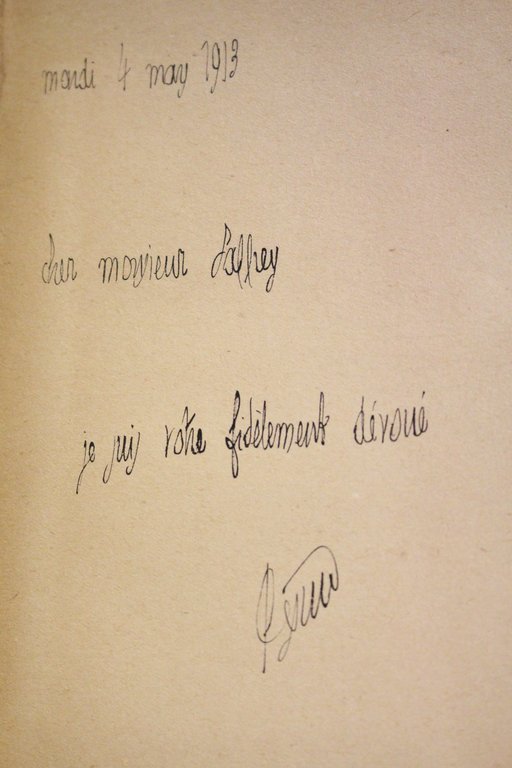 mardi 4 may 1913
cher monsieur
je suis votre fidèlement dévoué